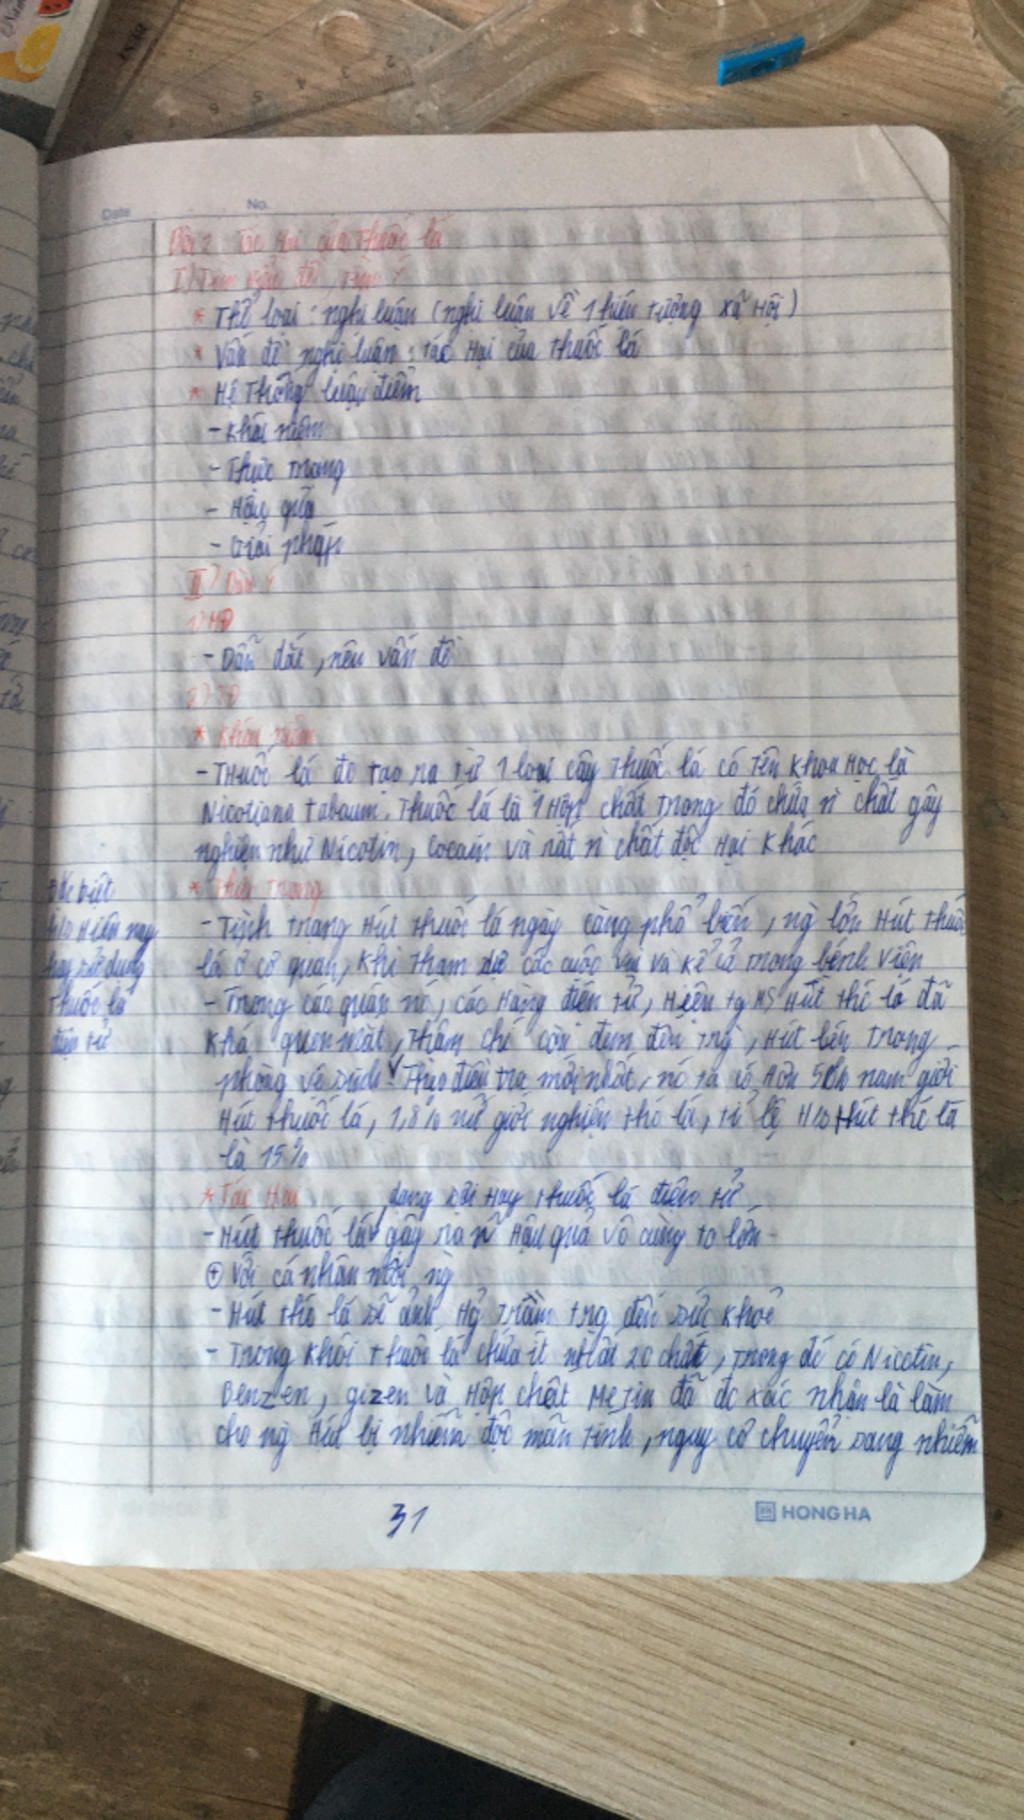 Date No.
Đề 2: Tác Hại của Thuốc lá
I) Tìm hiểu đề, tìm ý
* Thể loại: nghị luận (nghị luận về 1 hiện tượng xã Hội)
* Vấn đề nghị luận: tác Hại của thuốc lá
* Hệ Thống luận điểm
- Khái niệm
- Thực trạng
- Hậu quả
- Giải pháp
II) Dàn ý
1) MB
- Dẫn dắt, nêu vấn đề
2) TB
* Khái niệm
- Thuốc lá đc tạo ra từ 1 loại cây Thuốc lá có Tên Khoa Học là
Nicotiana tabaum. Thuốc lá là 1 Hợp chất trong đó chứa n~ chất gây
nghiện như Nicotin, Cocain và rất n` chất độc Hại Khác
* Thực Trạng
- Tình trạng Hút thuốc lá ngày càng phổ biến, ng` lớn Hút thuốc
lá ở cơ quan, Khi Tham dự các cuộc vui và Kể cả trong bệnh viện
- Trong các quán nc, các Hàng điện tử, Hiện tg HS Hút thc lá đã
Khá quen mắt, thậm chí còn đem đến trg, Hút bên trong
phòng vệ sinh. Theo điều tra mới nhất, nc ta có Hơn 50% nam giới
Hút thuốc lá, 1,8% nữ giới nghiện thc lá, tỉ lệ HS Hút thc lá
là 15%
đặc biệt
HS Hiện nay
hay sử dụng
thuốc lá
điện tử
* Tác Hại
- Hút thuốc lá gây ra n~ Hậu quả vô cùng to lớn
dạng sợi Hay thuốc lá điện tử
+ Với cá nhân mỗi ng`
- Hút thc lá sẽ ảnh Hg trầm trg đến sức khoẻ
- Trong Khói thuốc lá chứa ít nhất 20 chất, trong đó có Nicotin,
Benzen, gizen và Hợp chất Metin đã đc xác nhận là làm
cho ng` Hút bị nhiễm độc mãn tính, nguy cơ chuyển sang nhiễm
31
HONG HA